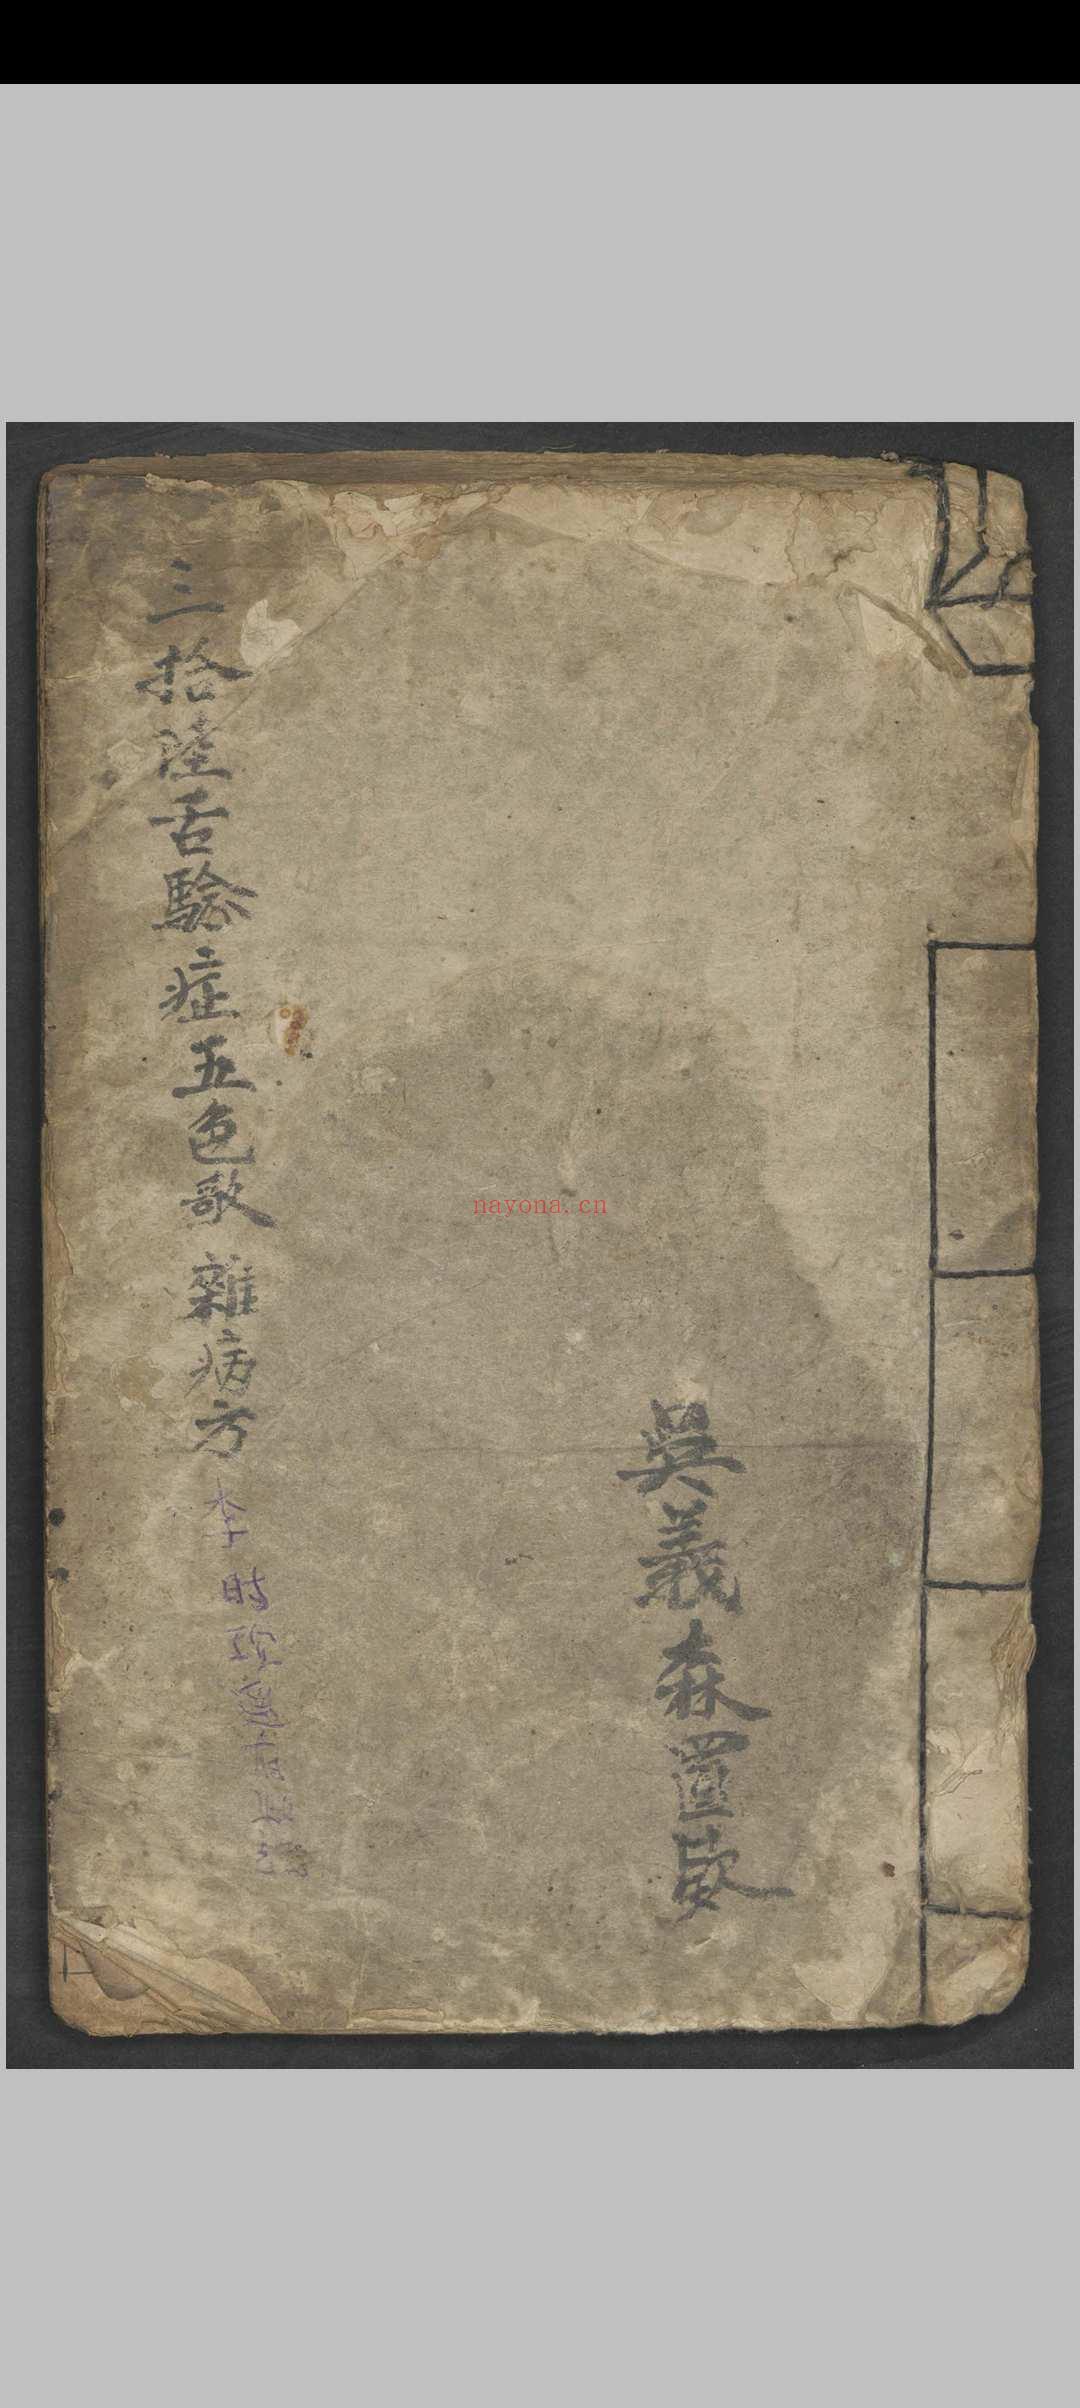 吳義森置
三拾陸舌驗症五色歌 雜病方
李時珍
nayona.cn